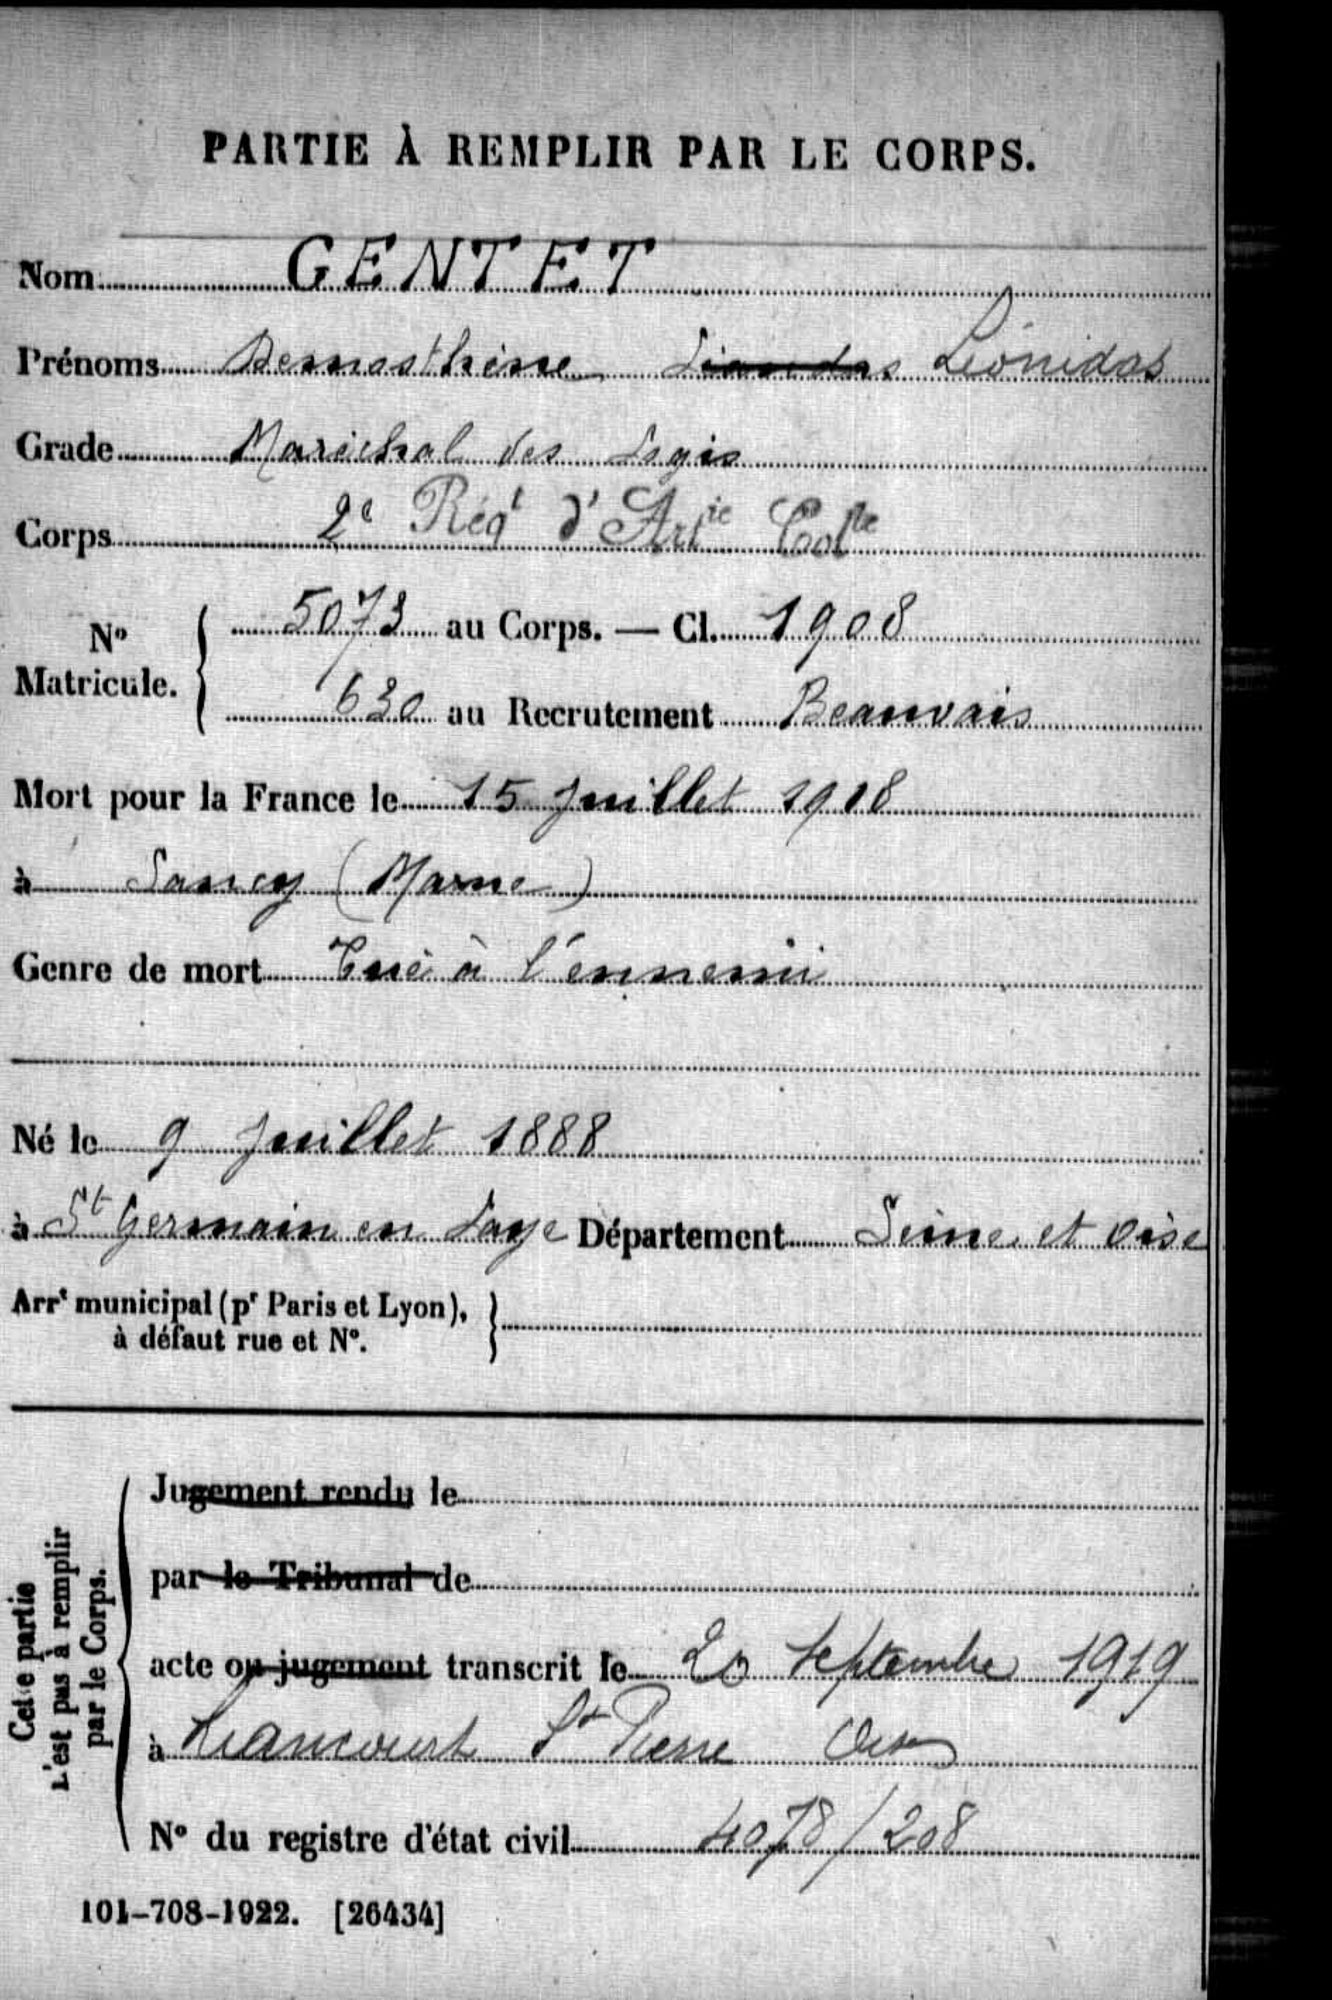 PARTIE À REMPLIR PAR LE CORPS.
Nom GENTET
Prénoms Demosthène Léonidas
Grade Maréchal des Logis
Corps 2e Régt d'Artie Colle
No Matricule. 5073 au Corps. — Cl. 1908
630 au Recrutement Beauvais
Mort pour la France le 15 Juillet 1918
à Sancy (Marne)
Genre de mort Tué à l'ennemi
Né le 9 Juillet 1888
à St Germain en Laye Département Seine et Oise
Arrt municipal (pr Paris et Lyon),
à défaut rue et No.
Cette partie
L'est pas à remplir
par le Corps.
Jugement rendu le
par le Tribunal de
acte ou jugement transcrit le 20 Septembre 1919
à Liancourt St Pierre Oise
No du registre d'état civil 4078/208
101-708-1922. [26434]